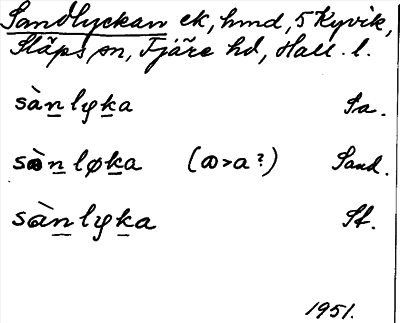 Sandlyckan ek, hmd, 5 Kyvik,
Släps sn, Fjäre hd, Hall. l.
sànlyka Sa.
sànløka (ɷ>a?) Sand.
sànlyka St.
1951.